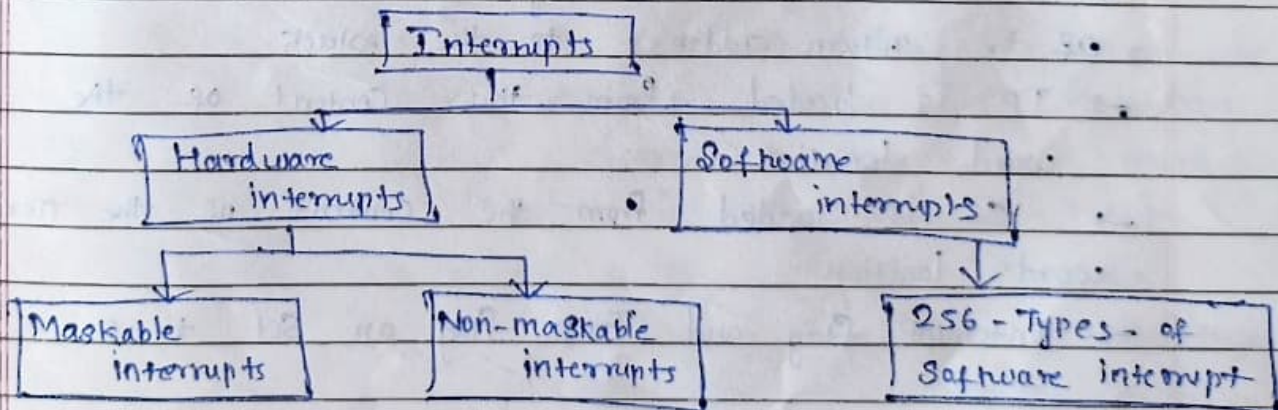 Interrupts
Hardware
interrupts
Software
interrupts
Maskable
interrupts
Non-maskable
interrupts
256 - Types - of
Software interrupt